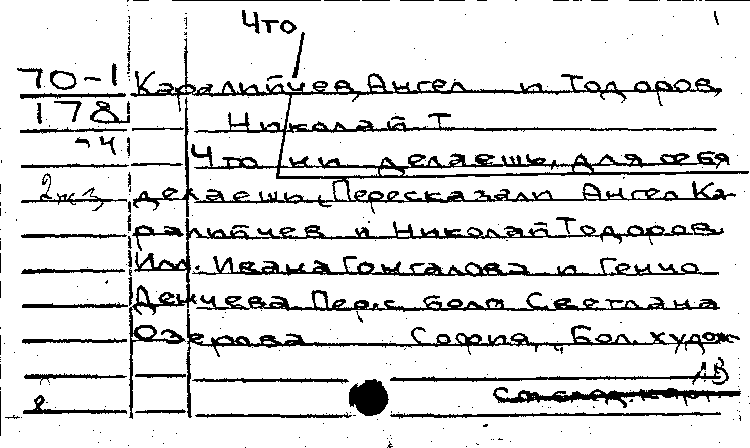 Что
1
70-1 Каралийчев, Ангел и Тодоров,
178 Николай Т
-41 Что ни делаешь, для себя
2 экз делаешь. Пересказали Ангел Ка-
ралийчев и Николай Тодоров.
Илл. Ивана Гонгалова и Генчо
Денчева Пер. с болг Светлана
Озерова София, „Бол. худож-
АВ
8 См след. карт